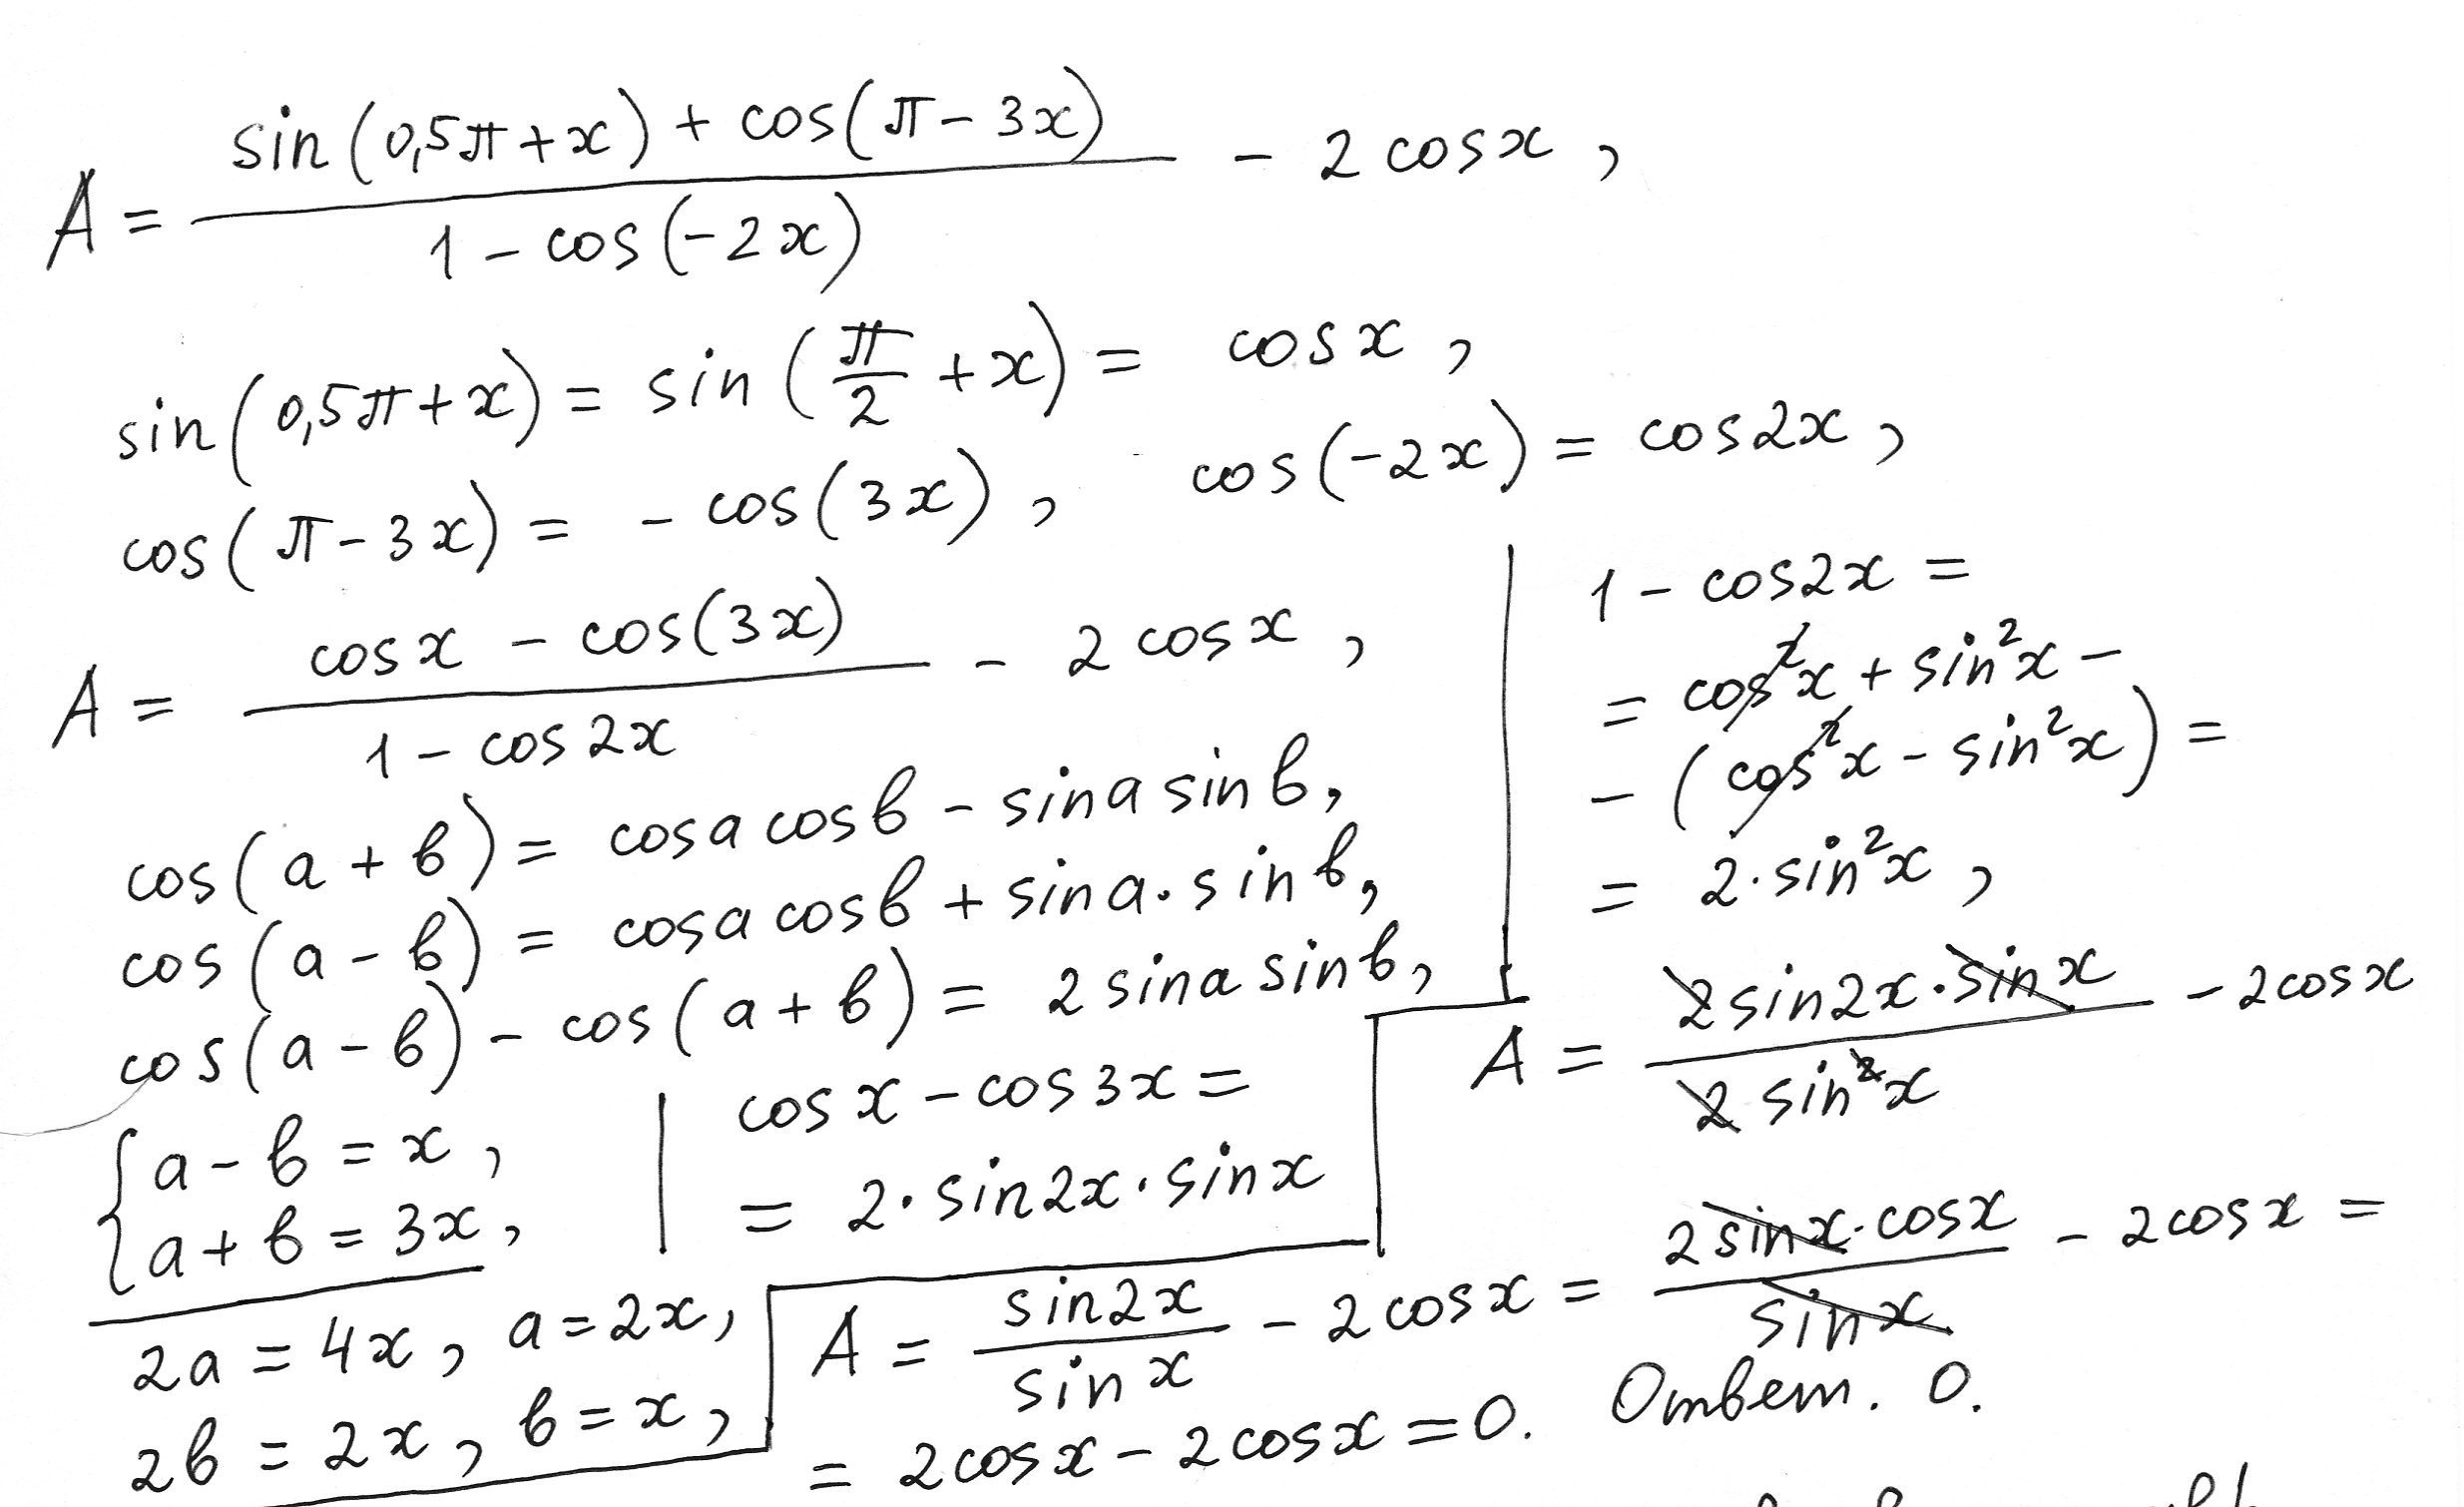 A = (sin(0,5π+x) + cos(π-3x)) / (1 - cos(-2x)) - 2 cosx,
sin(0,5π+x) = sin(π/2 + x) = cosx,
cos(π-3x) = - cos(3x), cos(-2x) = cos2x,
A = (cosx - cos(3x)) / (1 - cos2x) - 2 cosx,
cos(a+в) = cosa cosв - sina sinв,
cos(a-в) = cosa cosв + sina·sinв,
cos(a-в) - cos(a+в) = 2 sina sinв,
{ a-в = x,
a+в = 3x,
2a = 4x, a=2x,
2в = 2x, в=x,
cosx - cos3x =
= 2·sin2x·sinx
1 - cos2x =
= cos²x + sin²x -
- (cos²x - sin²x) =
= 2·sin²x,
A = (2sin2x·sinx) / (2 sin²x) - 2cosx
A = sin2x / sinx - 2cosx = (2sinx·cosx) / sinx - 2cosx =
= 2cosx - 2cosx = 0. Ответ. 0.